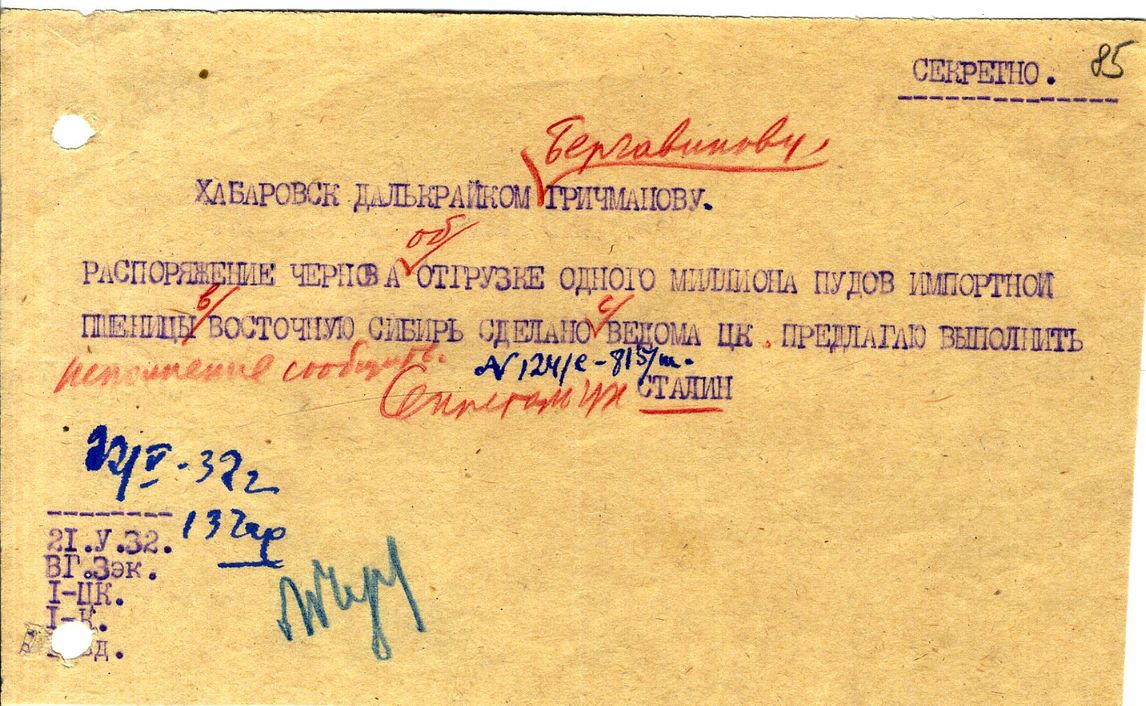 СЕКРЕТНО. 85
Бергавинову,
ХАБАРОВСК ДАЛЬКРАЙКОМ ГРИЧМАНОВУ.
об
РАСПОРЯЖЕНИЕ ЧЕРНОВА ОТГРУЗКЕ ОДНОГО МИЛЛИОНА ПУДОВ ИМПОРТНОЙ
в с
ПШЕНИЦЫ ВОСТОЧНУЮ СИБИРЬ СДЕЛАНО ВЕДОМА ЦК. ПРЕДЛАГАЮ ВЫПОЛНИТЬ
исполнение сообщить. N 124/с-815/ш.
Секретарь ЦК СТАЛИН
22/V-32г
21.V.32.
ВГ.3эк.
I-ЦК.
I-К.